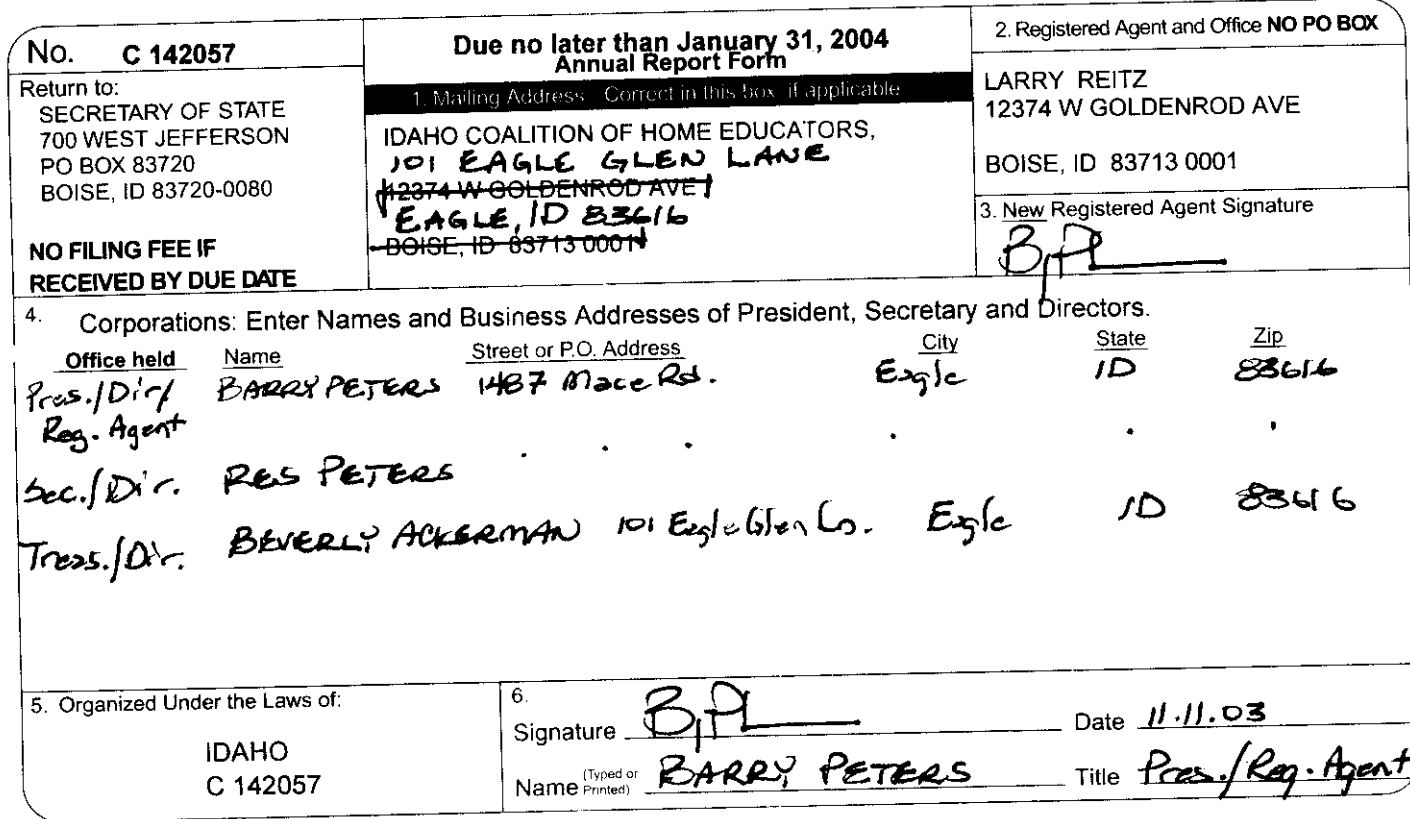 No. C 142057
Return to:
SECRETARY OF STATE
700 WEST JEFFERSON
PO BOX 83720
BOISE, ID 83720-0080
NO FILING FEE IF
RECEIVED BY DUE DATE
Due no later than January 31, 2004
Annual Report Form
1. Mailing Address Correct in this box if applicable
IDAHO COALITION OF HOME EDUCATORS,
101 EAGLE GLEN LANE
12374 W GOLDENROD AVE
EAGLE, ID 83616
BOISE, ID 83713 0001
2. Registered Agent and Office NO PO BOX
LARRY REITZ
12374 W GOLDENROD AVE
BOISE, ID 83713 0001
3. New Registered Agent Signature
4. Corporations: Enter Names and Business Addresses of President, Secretary and Directors.
Office held Name Street or P.O. Address City State Zip
Pres./Dir/ BARRY PETERS 1487 Mace Rd. Eagle ID 83616
Reg. Agent
Sec./Dir. PETERS
Treas./Dir. BEVERLY ACKERMAN 101 Eagle Glen Ln. Eagle ID 83616
5. Organized Under the Laws of:
IDAHO
C 142057
6.
Signature Date 11.11.03
Name (Typed or Printed) BARRY PETERS Title Pres./Reg. Agent